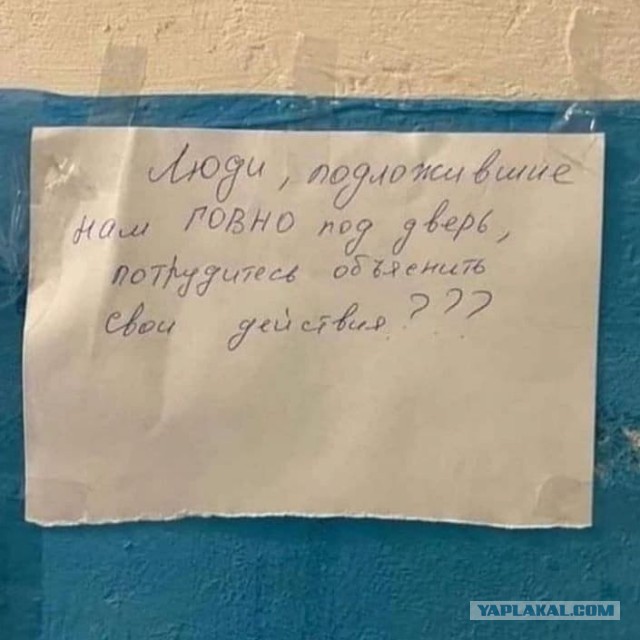 Люди, подложившие
нам ГОВНО под дверь,
потрудитесь объяснить
свои действия???
YAPLAKAL.COM